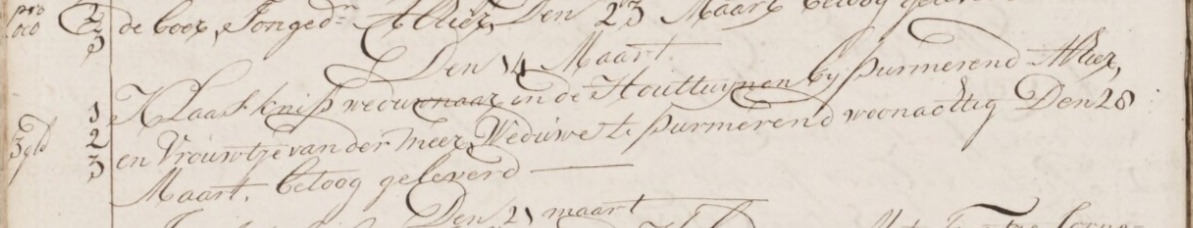 pro
de boer, Jonged.n Alhier, Den 23 Maart betoog
Den 14 Maart
1 Klaas Knip weduwnaar in de Houttuijnen bij Purmerend Alhier,
3gld 2 en Vrouwtje van der meer, Weduwe te Purmerend woonagttig Den 28
3 Maart. betoog geleverd
Den 21 maart